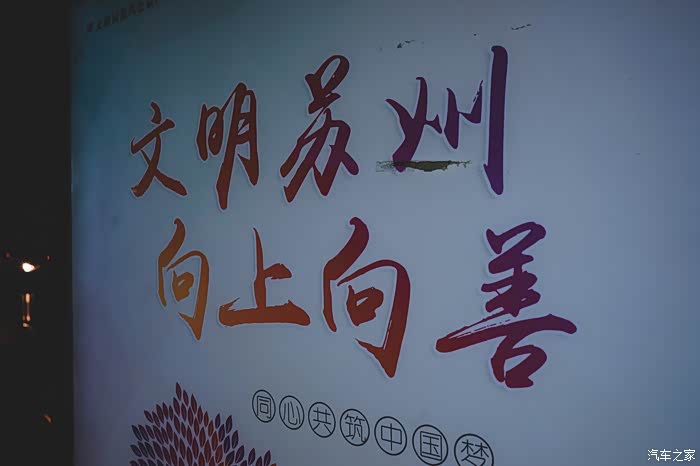 文明苏州
向上向善
同心共筑中国梦
汽车之家